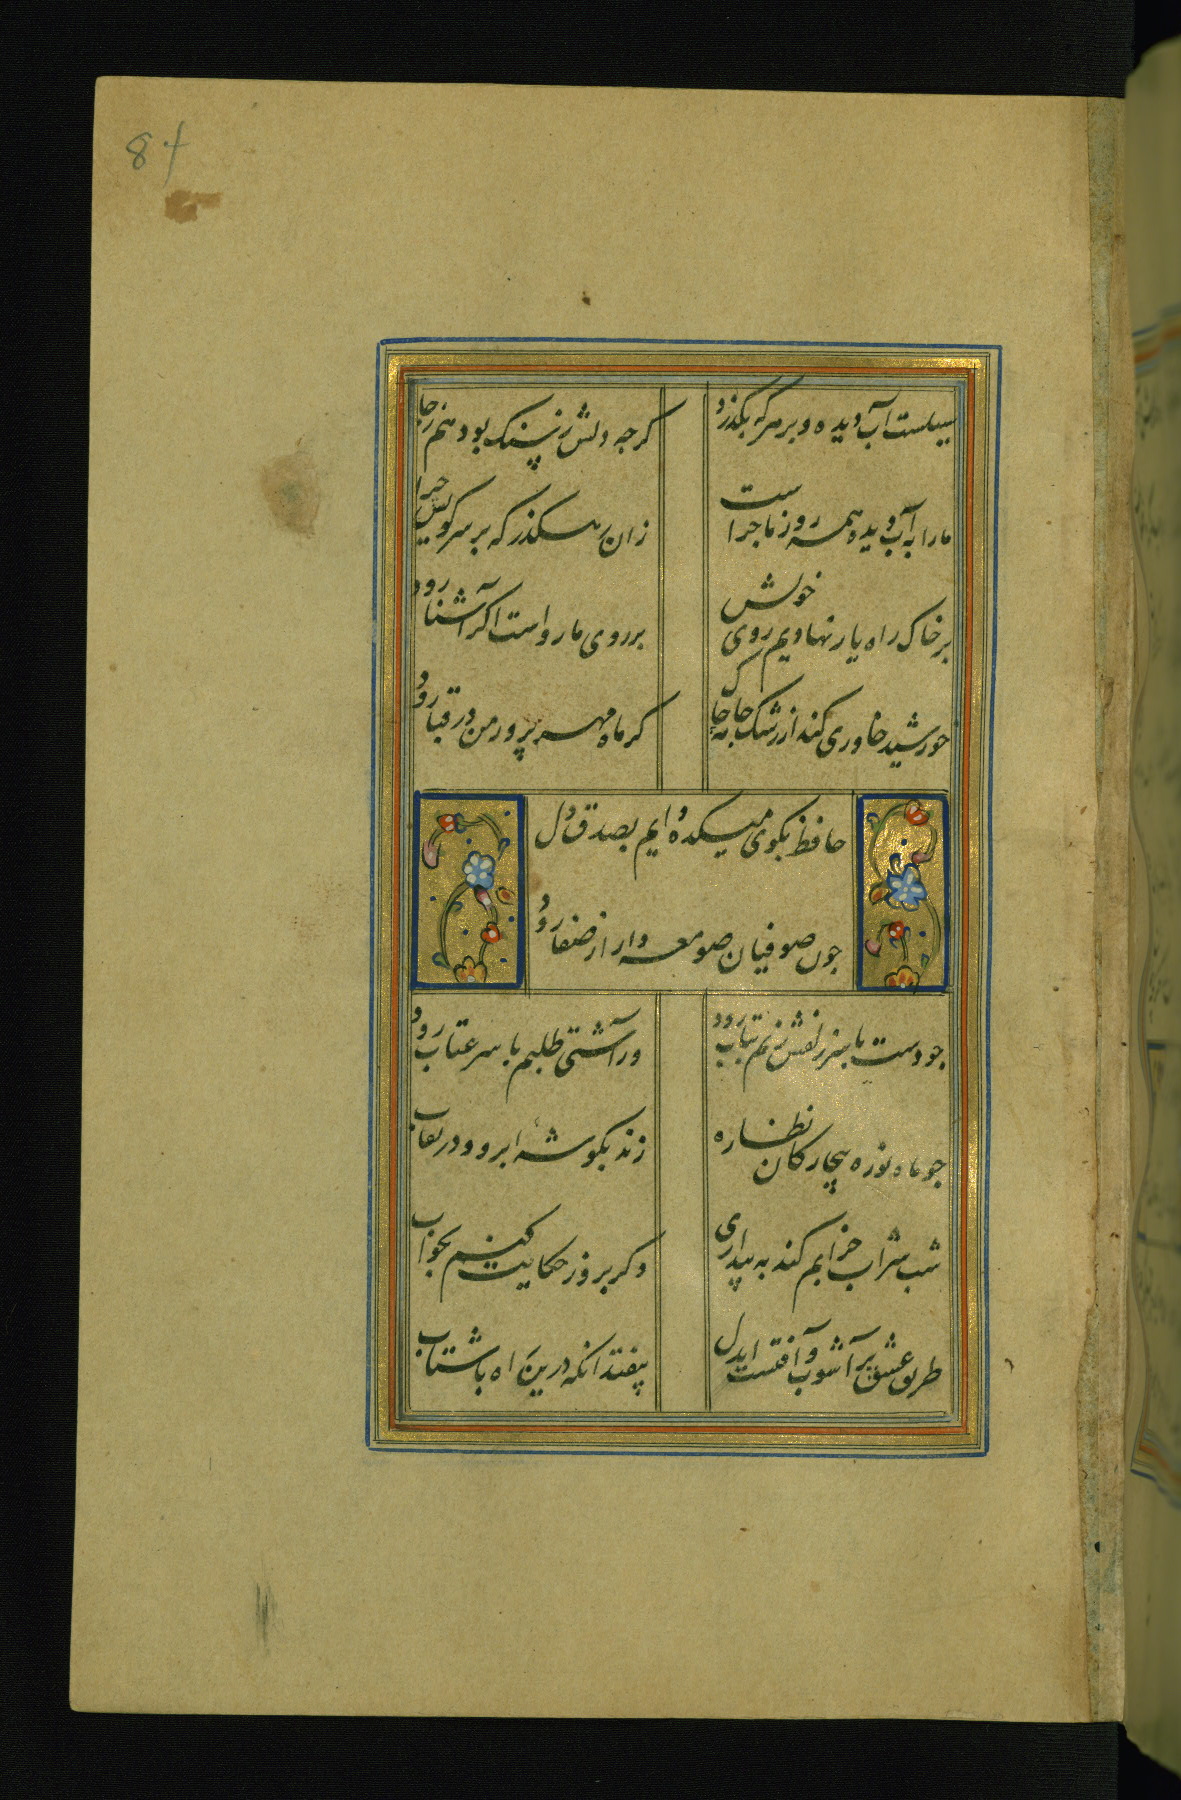 84
سیلست آب دیده و بر هرکه بگذرد
کرچه دلش ز سنک بود هم ز جا رود
ما را به آب دیده همه روز ماجراست
زان رهگذر که بر سر کویش چرا رود
بر خاک راه یار نهادیم روی خویش
بر روی ما رواست اکر آشنا رود
خورشید خاوری کند از رشک جامه چاک
کر ماه مهر پرور من در قبا رود
حافظ بکوی میکده دایم بصدق دل
چون صوفیان صومعه دار از صفا رود
چو دست بر سر زلفش زنم بتاب رود
ور آشتی طلبم با سر عتاب رود
چو ماه نو ره بیچارکان نظاره
زند بکوشه ابرو و در نقاب
شب شراب خرابم کند به بیداری
وکر بروز حکایت کنم بخواب
طریق عشق پر آشوب و آفتست ایدل
بیفتد انکه درین راه باشتاب